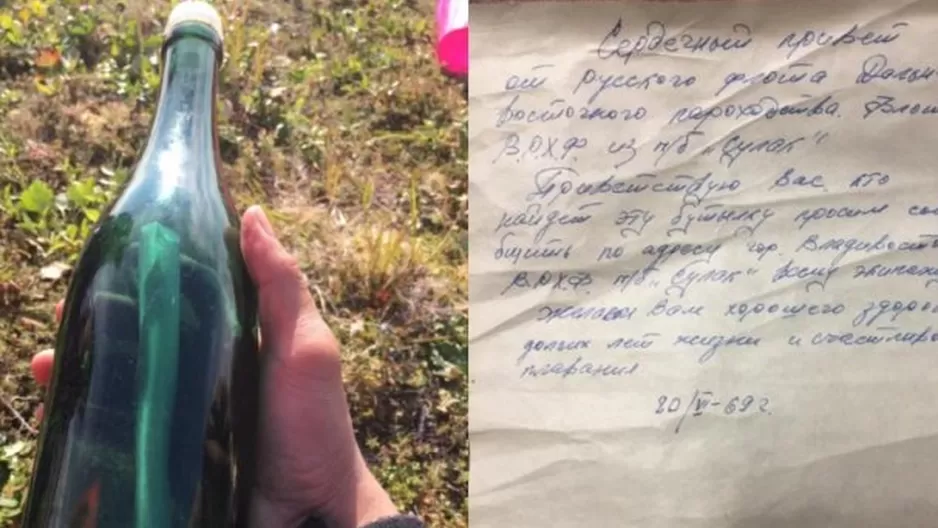 Сердечный привет
от русского флота Дальн
восточного пароходства.
В.О.Х.Ф. из п/б „Сулак"
Приветствую Вас, кто
найдет эту бутылку просим соо
бщить по адресу гор. Владивосто
В.О.Х.Ф. п/б „Сулак" всему экипажу
желаем Вам хорошего здоро
долгих лет жизни и счастливо
плавания
20/VI-69 г.